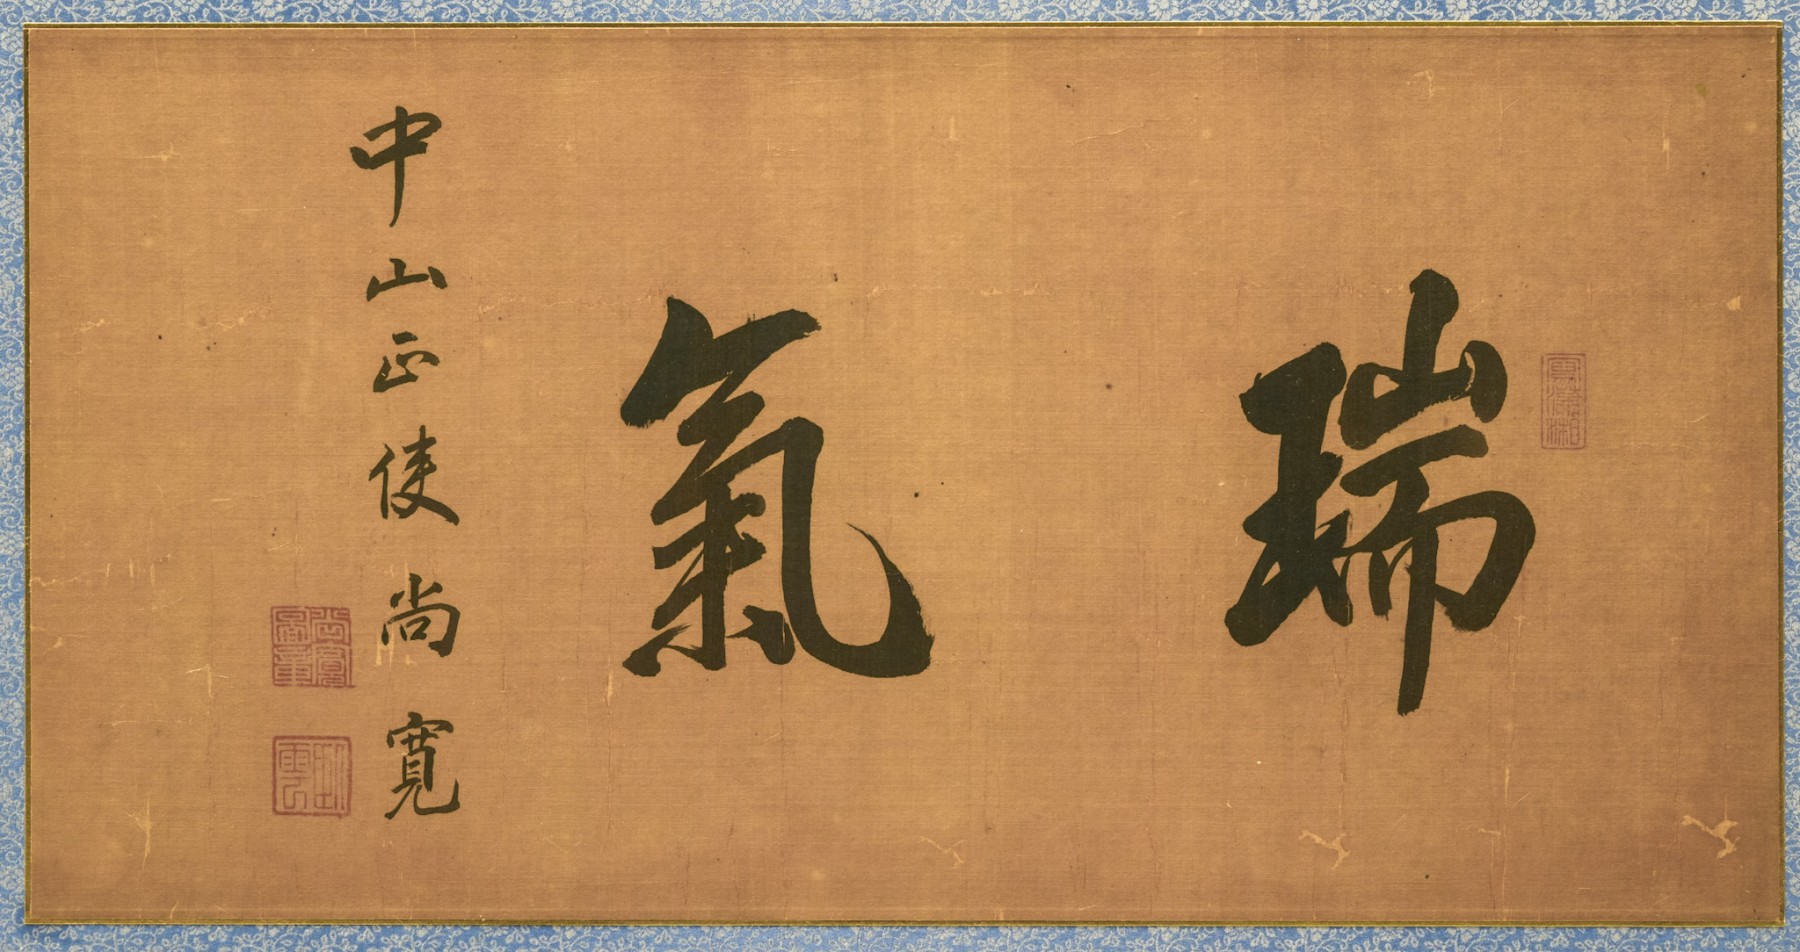 瑞氣
中山正使尚寛